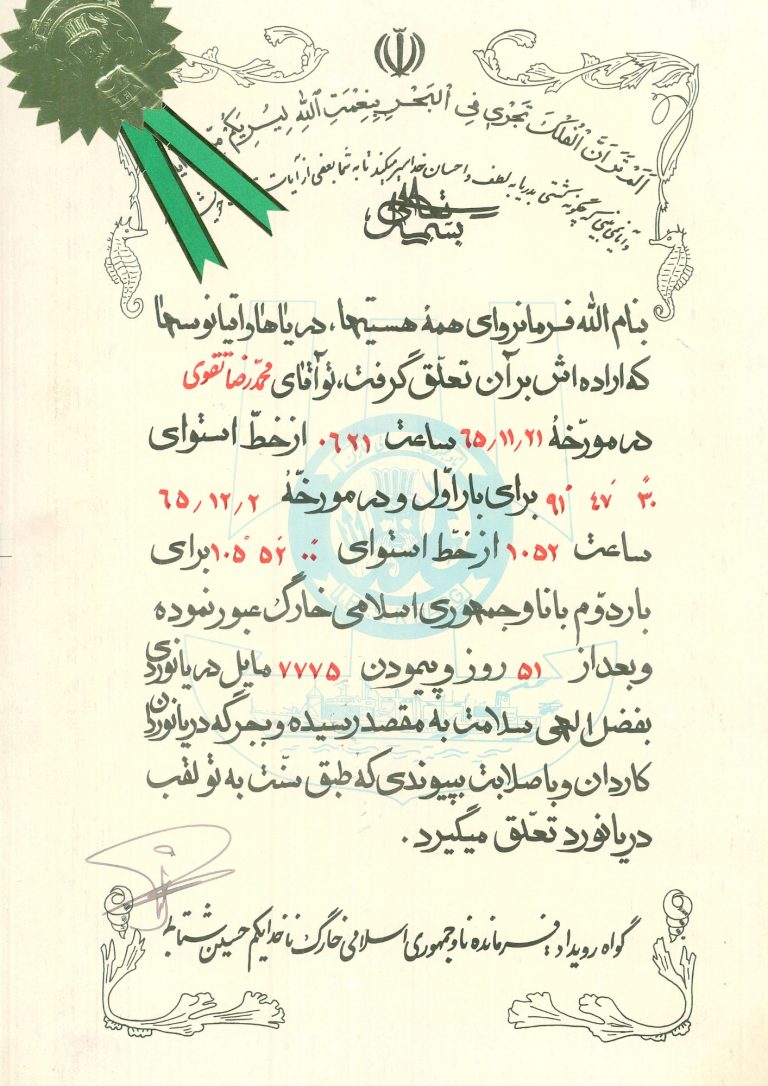 اَلَمْ تَرَ اَنَّ الْفُلْكَ تَجْرِي فِي الْبَحْرِ بِنِعْمَتِ اللّٰهِ لِيُرِيَكُمْ
و آیا نمی بینی که چگونه کشتی بدریا به لطف و احسان خدا سیر میکند تا به شما بعضی از آیات
بسمه تعالی
بنام الله فرمانروای همهٔ هستیها، دریاها و اقیانوسها
که اراده اش بر آن تعلّق گرفت، تو آقای محمّدرضا تقوی
در مورّخهٔ ۶۵٫۱۱٫۲۱ ساعت ۰۶۲۱ از خطّ استوای
۳۰ً ۴۷َ ۹۱ْ برای بار اوّل و در مورخّهٔ ۶۵٫۱۲٫۲
ساعت ۱۰۵۲ از خطّ استوای ۰۰ً ۵۲َ ۱۰۵ْ برای
بار دوّم با ناو جمهوری اسلامی خارگ عبور نموده
و بعد از ۵۱ روز و پیمودن ۷۷۷۵ مایل دریانوردی
بفضل الهی سلامت به مقصد رسیده و بجرگه دریانوردان
کاردان و با صلابت بپیوندی که طبق سنّت به تو لقب
دریانورد تعلّق میگیرد.
گواه رویداد: فرمانده ناو جمهوری اسلامی خارگ ناخدایکم حسین شتابا